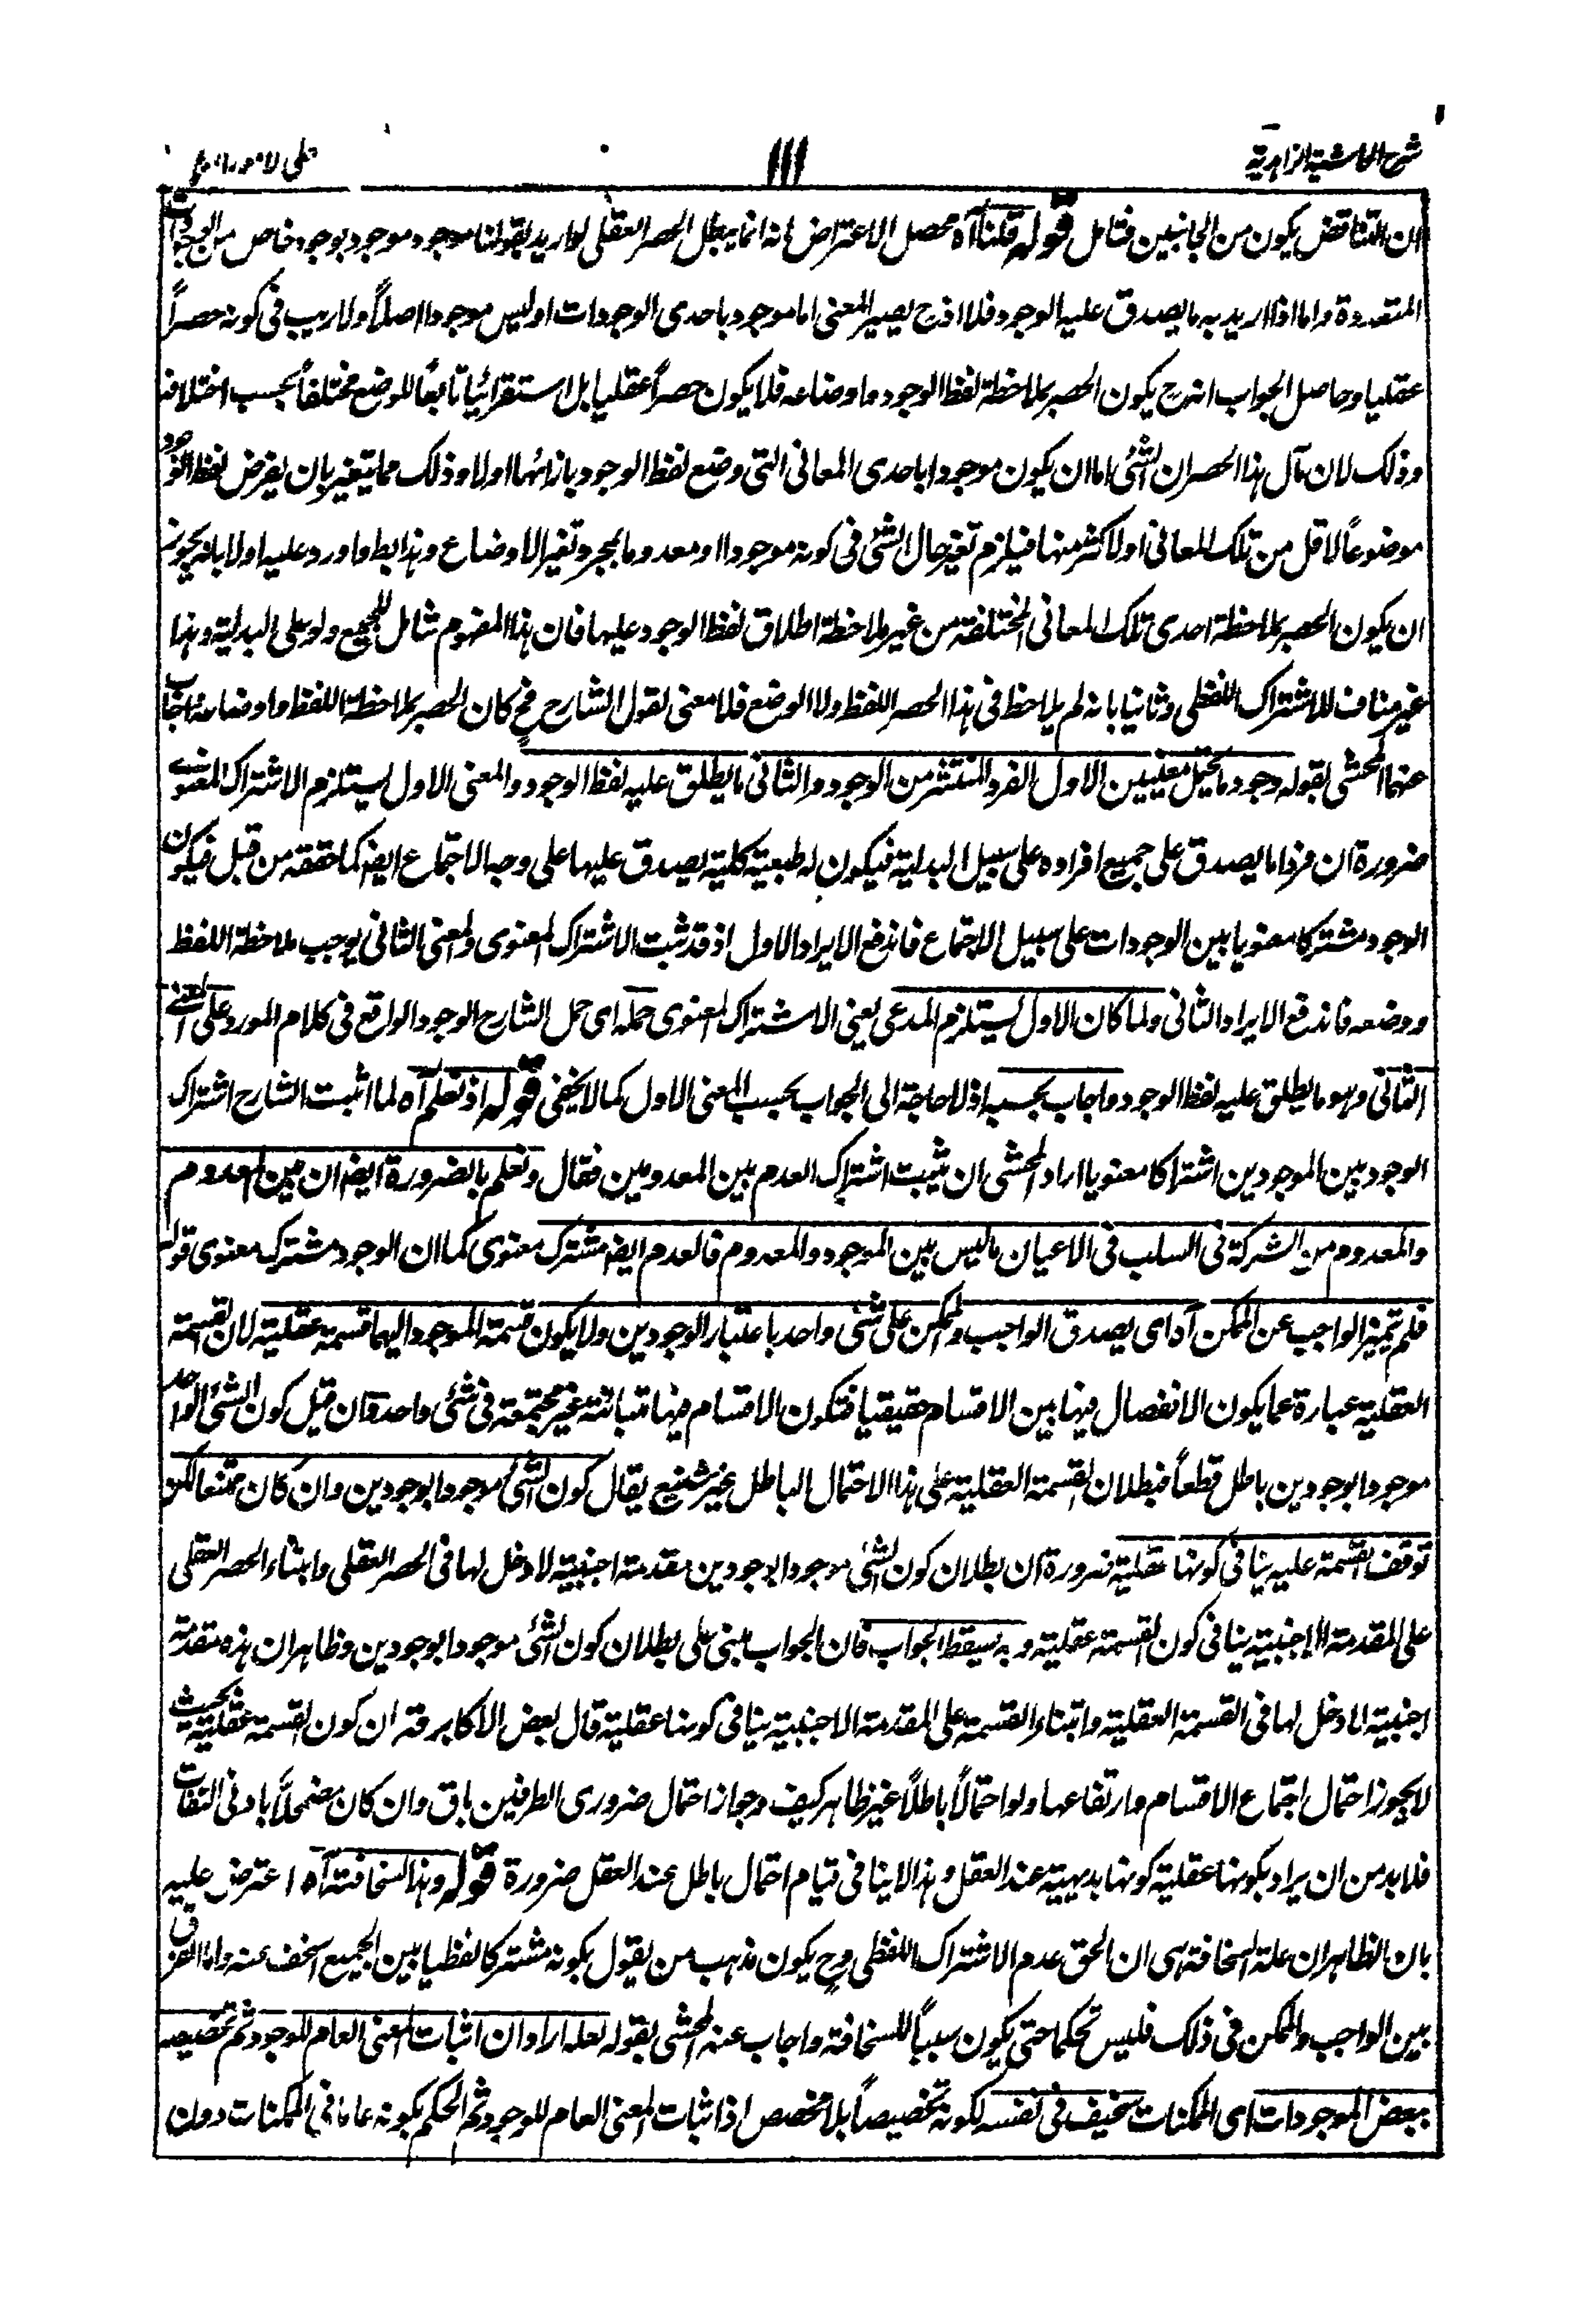 شرح الحاشیة الزاهدیة ١١١ علی الامور العامة
ان التناقض یکون من الجانبین فتامل قوله قلنا آه محصل الاعتراض انه انما یبطل الحصر العقلی لو ارید بقولنا موجود موجود بوجود خاص من الوجودات
المتعددة واما اذا ارید به ما یصدق علیه الوجود فلا اذ ح یصیر المعنی اما موجود باحدی الوجودات او لیس موجودا اصلاً ولا ریب فی کونه حصراً
عقلیا وحاصل الجواب انه ح یکون الحصر بملاحظة لفظ الوجود واوضاعه فلا یکون حصراً عقلیا بل استقرائیا تابعاً للوضع مختلفاً بحسب اختلافه
وذلک لان مآل هذا الحصر ان الشئ اما ان یکون موجودا باحدی المعانی التی وضع لفظ الوجود بازائها اولا وذلک مما یتغیر بان یفرض لفظ الوجود
موضوعاً لاقل من تلک المعانی او لاکثر منها فیلزم تغیر حال الشئ فی کونه موجودا او معدوما بمجرد تغیر الاوضاع وهذا بط واورد علیه اولا بانه یجوز
ان یکون الحصر بملاحظة احدی تلک المعانی المختلفة من غیر ملاحظة اطلاق لفظ الوجود علیها فان هذا المفهوم شامل للجمیع ولو علی البدلیة وهذا
غیر مناف للاشتراک اللفظی وثانیا بانه لم یلاحظ فی هذا الحصر اللفظ ولا الوضع فلا معنی لقول الشارح فح کان الحصر بملاحظة اللفظ واوضاعه اجاب
عنهما المحشی بقوله وجود ما یحتمل معنیین الاول الفرد المنتشر من الوجود والثانی ما یطلق علیه لفظ الوجود والمعنی الاول یستلزم الاشتراک المعنوی
ضرورة ان فردا ما یصدق علی جمیع افراده علی سبیل البدلیة فیکون له طبعیة کلیة یصدق علیها علی وجه الاجتماع ایضا کما حققه من قبل فیکون
الوجود مشترکا معنویا بین الوجودات علی سبیل الاجتماع فاندفع الایراد الاول اذ قد ثبت الاشتراک المعنوی والمعنی الثانی یوجب ملاحظة اللفظ
ووضعه فاندفع الایراد الثانی ولما کان الاول یستلزم المدعی یعنی الاشتراک المعنوی حمله ای حمل الشارح الوجود الواقع فی کلام المورد علی المعنی
الثانی وهو ما یطلق علیه لفظ الوجود واجاب بحسبه اذ لا حاجة الی الجواب بحسب المعنی الاول کما لا یخفی قوله اذ نعلم آه لما اثبت الشارح اشتراک
الوجود بین الموجودین اشتراکا معنویا اراد المحشی ان یثبت اشتراک العدم بین المعدومین فقال ونعلم بالضرورة ایضا ان بین المعدوم
والمعدوم من الشرکة فی السلب فی الاعیان ما لیس بین الموجود والمعدوم فالعدم ایضا مشترک معنوی کما ان الوجود مشترک معنوی قوله
فلم تمیز الواجب عن الممکن آه ای یصدق الواجب والممکن علی شئ واحد باعتبار الوجودین ولا یکون قسمة الموجود الیهما قسمة عقلیة لان القسمة
العقلیة عبارة عما یکون الانفصال فیها بین الاقسام حقیقیا فتکون الاقسام فیها متباینة غیر مجتمعة فی شئ واحد فان قیل کون الشئ الواحد
موجودا بوجودین باطل قطعاً فبطلان القسمة العقلیة علی هذا الاحتمال الباطل غیر شنیع یقال کون الشئ موجودا بوجودین وان کان ممتنعا لکن
توقف القسمة علیه ینافی کونها عقلیة ضرورة ان بطلان کون الشئ موجودا بوجودین مقدمة اجنبیة لا دخل لها فی الحصر العقلی وابتناء الحصر العقلی
علی المقدمة الاجنبیة ینافی کون القسمة عقلیة وبه یسقط الجواب فان الجواب مبنی علی بطلان کون الشئ موجودا بوجودین وظاهر ان هذه مقدمة
اجنبیة لا دخل لها فی القسمة العقلیة وابتناء القسمة علی المقدمة الاجنبیة ینافی کونها عقلیة قال بعض الاکابر قه ان کون القسمة عقلیة بحیث
لا یجوز احتمال اجتماع الاقسام وارتفاعها ولو احتمالاً باطلاً غیر ظاهر کیف وجواز احتمال ضروری الطرفین باق وان کان مضمحلاً بادنی التفات
فلا بد من ان یراد بکونها عقلیة کونها بدیهیة عند العقل وهذا لا ینافی قیام احتمال باطل عند العقل ضرورة قوله وهذا السخافة آه اعترض علیه
بان الظاهر ان علة السخافة هی ان الحق عدم الاشتراک اللفظی وح یکون مذهب من یقول بکونه مشترکا لفظیا بین الجمیع اسخف عنه واما الفرق
بین الواجب والممکن فی ذلک فلیس تحکما حتی یکون سبباً للسخافة واجاب عنه المحشی بقوله لعله اراد ان اثبات المعنی العام للوجود ثم تخصیصه
ببعض الموجودات ای الممکنات سخیف فی نفسه لکونه تخصیصاً بلا مخصص اذ اثبات المعنی العام للوجود ثم الحکم بکونه عاما فی الممکنات دون